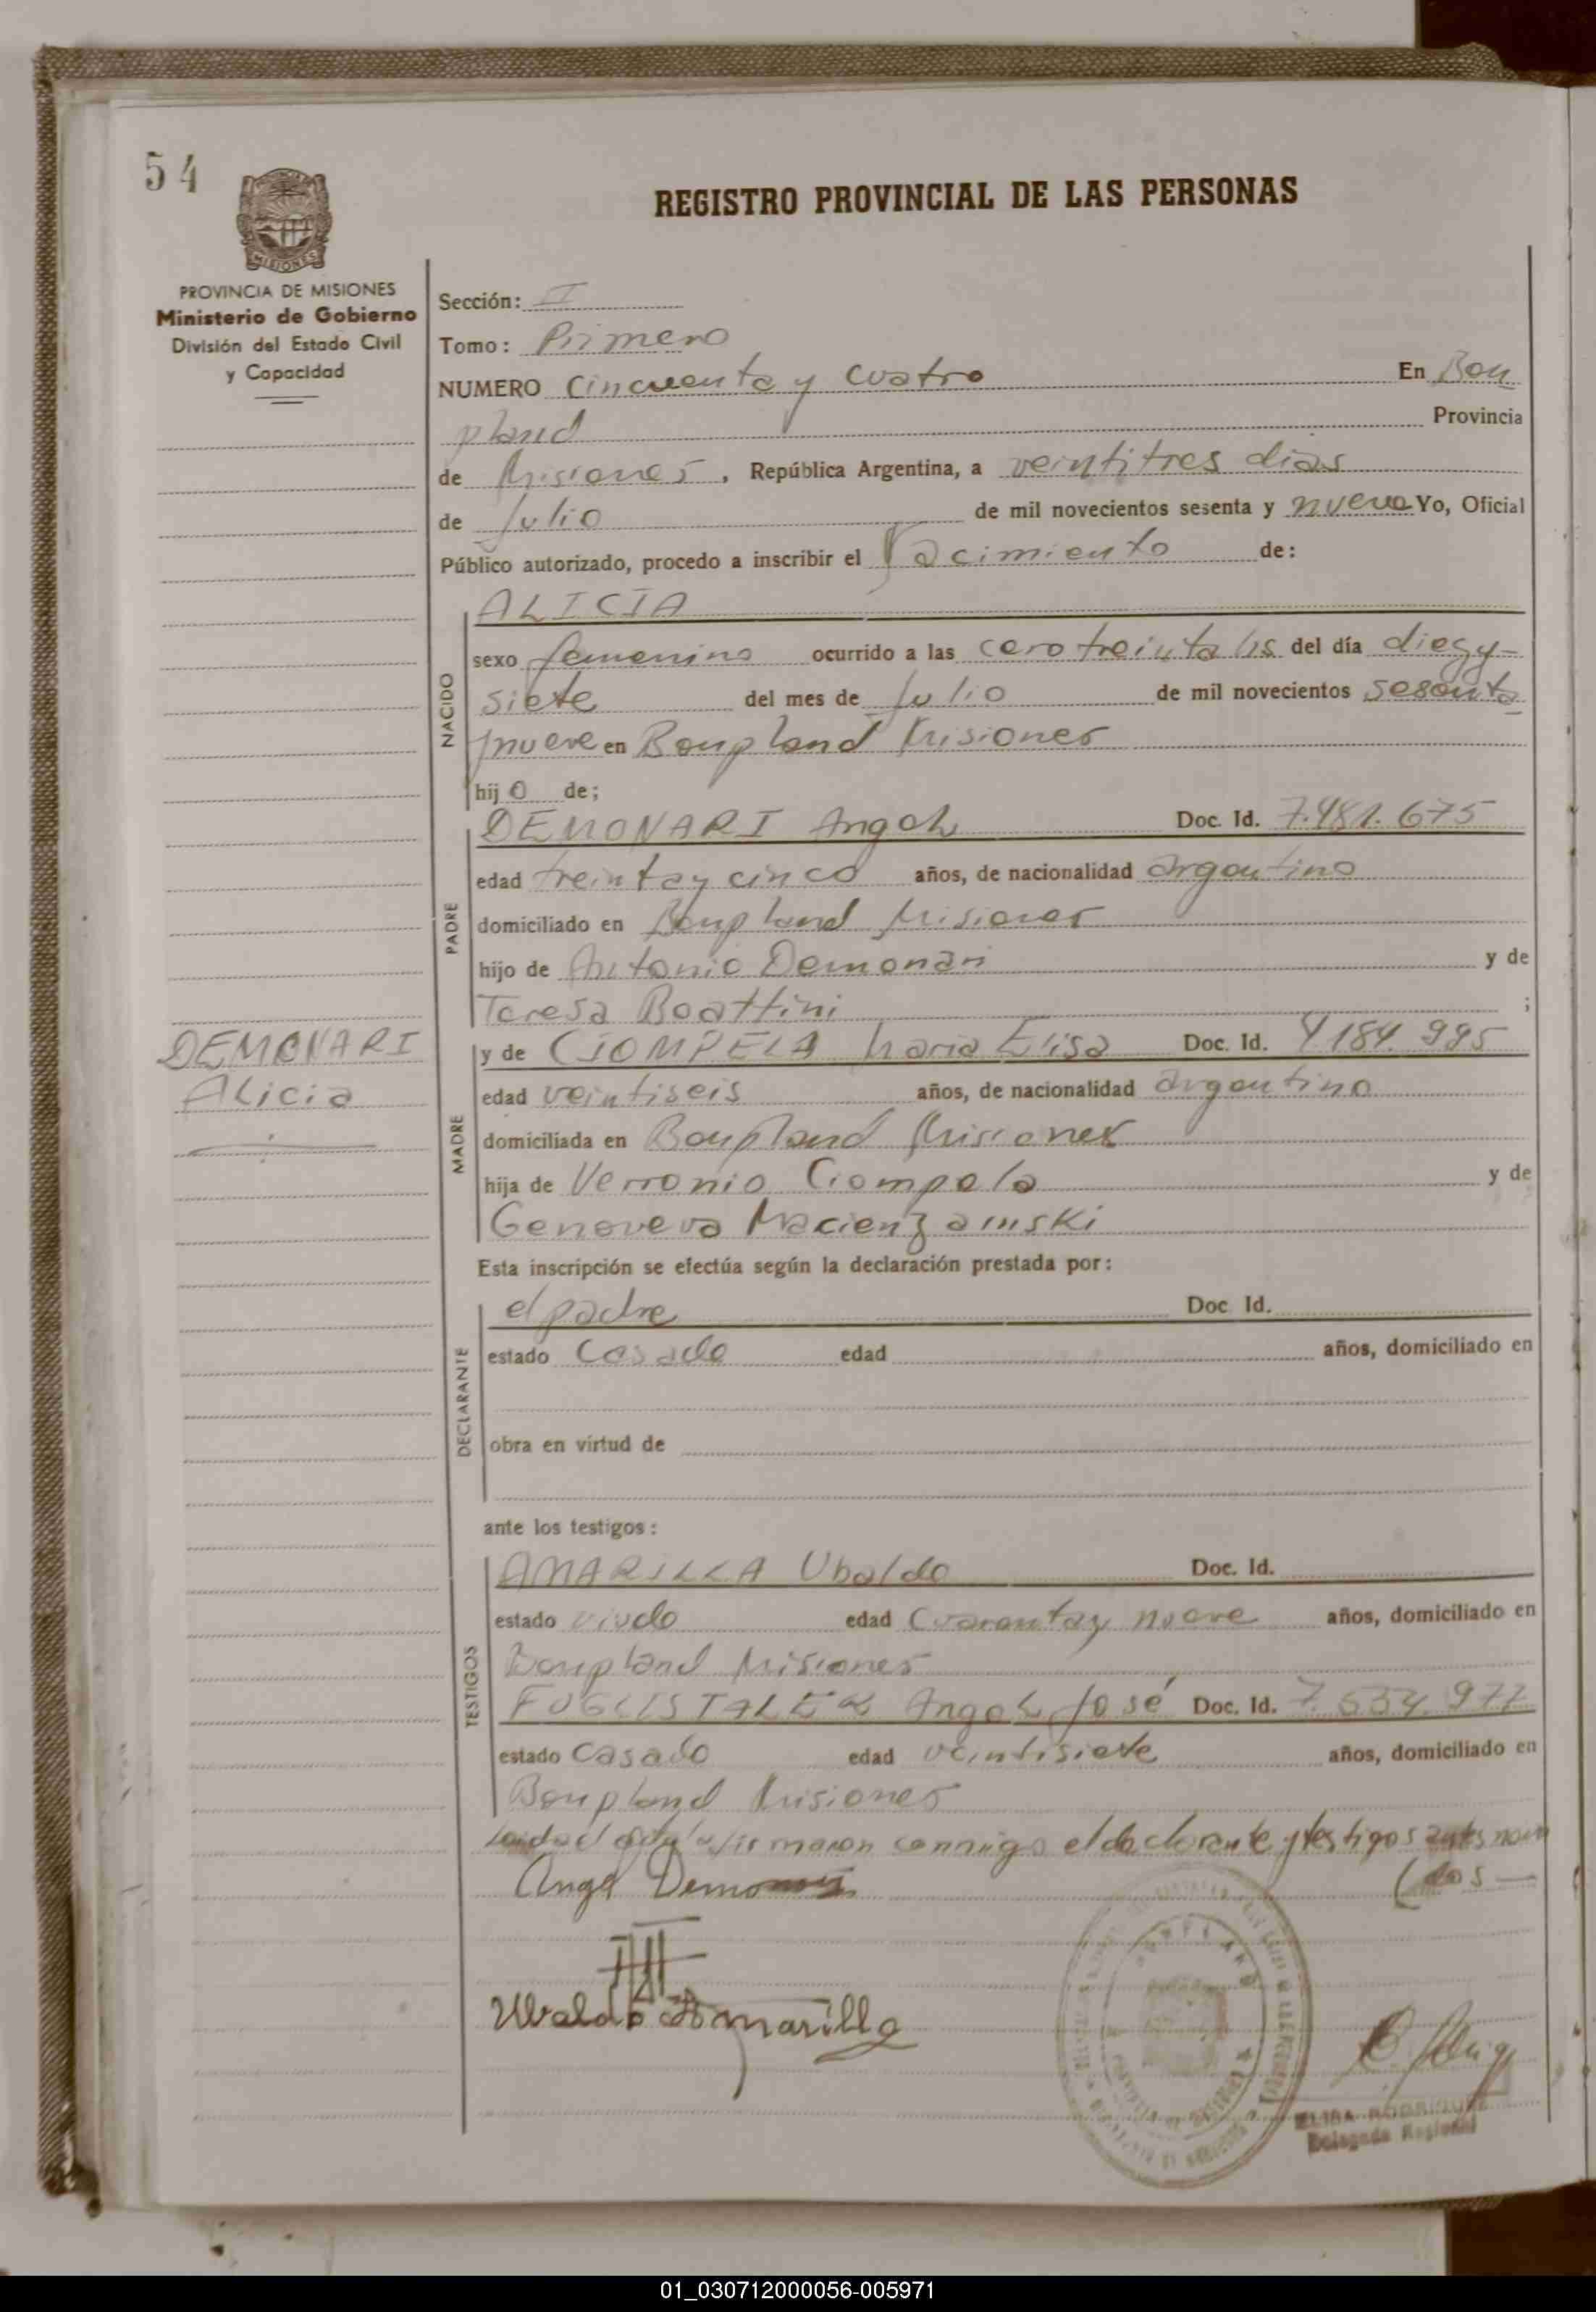 54
MISIONES
PROVINCIA DE MISIONES
Ministerio de Gobierno
División del Estado Civil
y Capacidad
REGISTRO PROVINCIAL DE LAS PERSONAS
Sección: II
Tomo: Primero
NUMERO cincuenta y cuatro En Bon
pland Provincia
de Misiones, República Argentina, a veintitres dias
de Julio de mil novecientos sesenta y nueve Yo, Oficial
Público autorizado, procedo a inscribir el Nacimiento de:
ALICIA
NACIDO
sexo femenino ocurrido a las cero treinta hs del día diez y
siete del mes de Julio de mil novecientos sesenta
y nueve en Bonpland Misiones
hij o de;
DEMONARI Angel Doc. Id. 7.481.675
PADRE
edad treinta y cinco años, de nacionalidad argentino
domiciliado en Bonpland Misiones
hijo de Antonio Demonari y de
Teresa Boattini ;
DEMONARI
Alicia
y de CIOMPELA Maria Elisa Doc. Id. 4184.995
MADRE
edad veintiseis años, de nacionalidad argentina
domiciliada en Bonpland Misiones
hija de Verronio Ciompela y de
Genoveva Macienzainski
Esta inscripción se efectúa según la declaración prestada por:
el padre Doc. Id.
DECLARANTE
estado Casado edad años, domiciliado en
obra en virtud de
ante los testigos:
AMARILLA Ubaldo Doc. Id.
TESTIGOS
estado viudo edad Cuarenta y nueve años, domiciliado en
Bonpland Misiones
FUGLISTALER Angel José Doc. Id. 7.534.977
estado casado edad veintisiete años, domiciliado en
Bonpland Misiones
Leida el acta la firmaron conmigo el declarante y testigos antes nom
(dos —
Angel Demonari
Ubaldo Amarilla
ELISA RODRIGUEZ
Delegada Regional
01_030712000056-005971